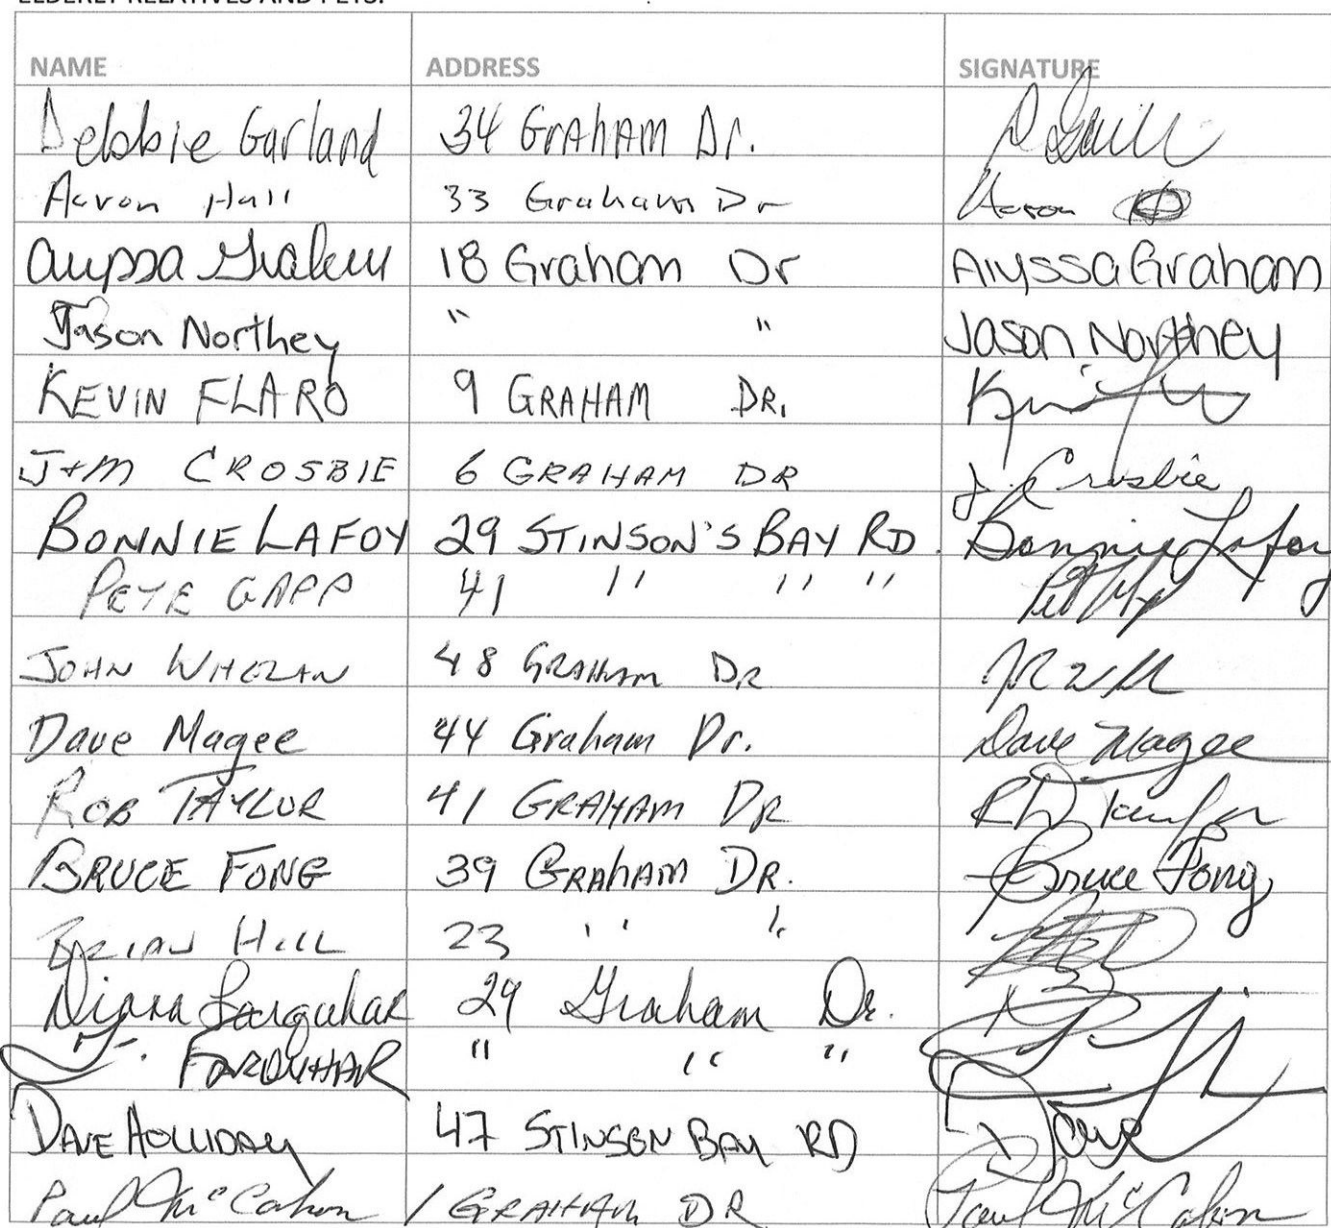 ELDERLY RELATIVES AND PETS.
NAME ADDRESS SIGNATURE
Debbie Garland 34 GRAhAM Dr.
Aaron Hall 33 Graham Dr Aaron
Alyssa Graham 18 Graham Dr Alyssa Graham
Jason Northey " " Jason Northey
KEVIN FLARO 9 GRAHAM DR.
J+M CROSBIE 6 GRAHAM DR J. Crosbie
BONNIE LAFOY 29 STINSON'S BAY RD. Bonnie Lafoy
PETE GAPP 41 " " "
JOHN WHELAN 48 GRAHAM DR
Dave Magee 44 Graham Dr. Dave Magee
ROB TAYLOR 41 GRAHAM DR
BRUCE FONG 39 GRAhAM DR. Bruce Fong
BRIAN HILL 23 " "
Diana Farquhar 29 Graham Dr.
FARQUHAR " " "
DAVE HOLLIDAY 47 STINSON BAY RD Dave
Paul McCahon 1 GRAHAM DR Paul McCahon